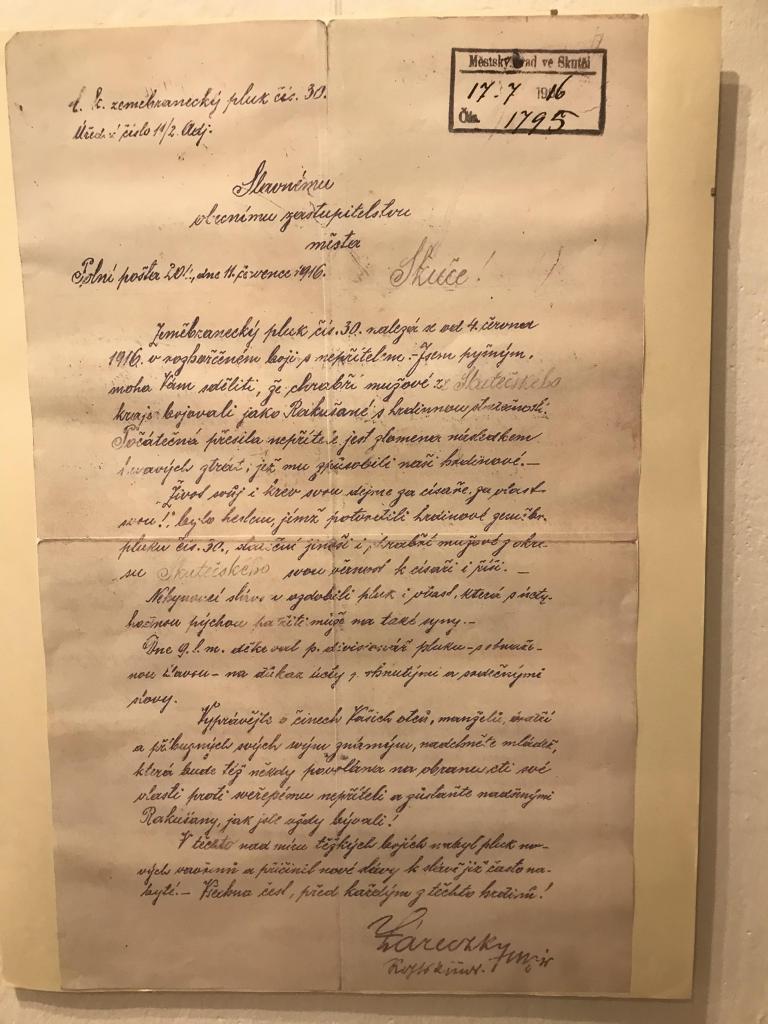 Městský úřad ve Skutči
17. 7 1916
Čís. 1795
c. k. zeměbranecký pluk čís. 30.
Úřední číslo 11/2. Adj.
Slavnému
obecnímu zastupitelstvu
města
Polní pošta 201., dne 11. července 1916.
Skuče!
Zeměbranecký pluk čís. 30. nalezá se od 4. června
1916. v rozhořčeném boji s nepřítelem. - Jsem pyšným,
moha Vám sděliti, že chrabří mužové ze Skutečského
kraje bojovali jako Rakušané s hrdinnou statečností.
Počátečná přesila nepřítele jest zlomena následkem
krvavých ztrát, jež mu způsobili naši hrdinové. -
"Život svůj i krev svou dejme za císaře, za vlast
svou!", bylo heslem, jímž potvrdili hrdinové zeměbr.
pluku čís. 30., stateční jinoši i chrabří mužové z okre-
su Skutečského svou věrnost k císaři i říši. -
Nehynoucí slávou ozdobili pluk i vlast, která s úcty-
hodnou pýchou patřiti může na také syny. -
Dne 9. t. m. děkoval p. divisionář pluku - s obnaže-
nou hlavou - na důkaz úcty s dhnutými a srdečnými
slovy.
Vyprávějte o činech Vašich otců, manželů, bratří
a příbuzných svých svým známým, nadchněte mládež,
která bude též někdy povolána na obranu cti své
vlasti proti sveřepému nepříteli a zůstaňte nadšenými
Rakušany, jak jste vždy bývali!
V těchto nad míru těžkých bojích nabyl pluk no-
vých vavřínů a přičinil nové slávy k slávě již často na-
byté. - Všechna čest, před každým z těchto hrdinů!